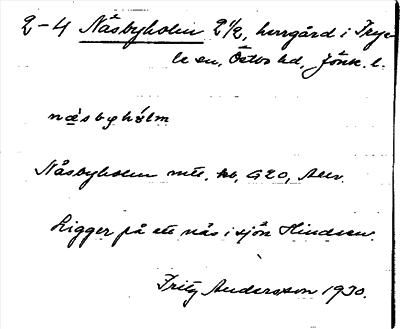 2-4 Näsbyholm 2 1/2, herrgård i Trye-
le sn, Östbo hd, Jönk. l.
næ̀sbyhólm
Näsbyholm mtl, kb, G20,
Ligger på ett näs i sjön Hindsen.
Fritz Andersson 1930.